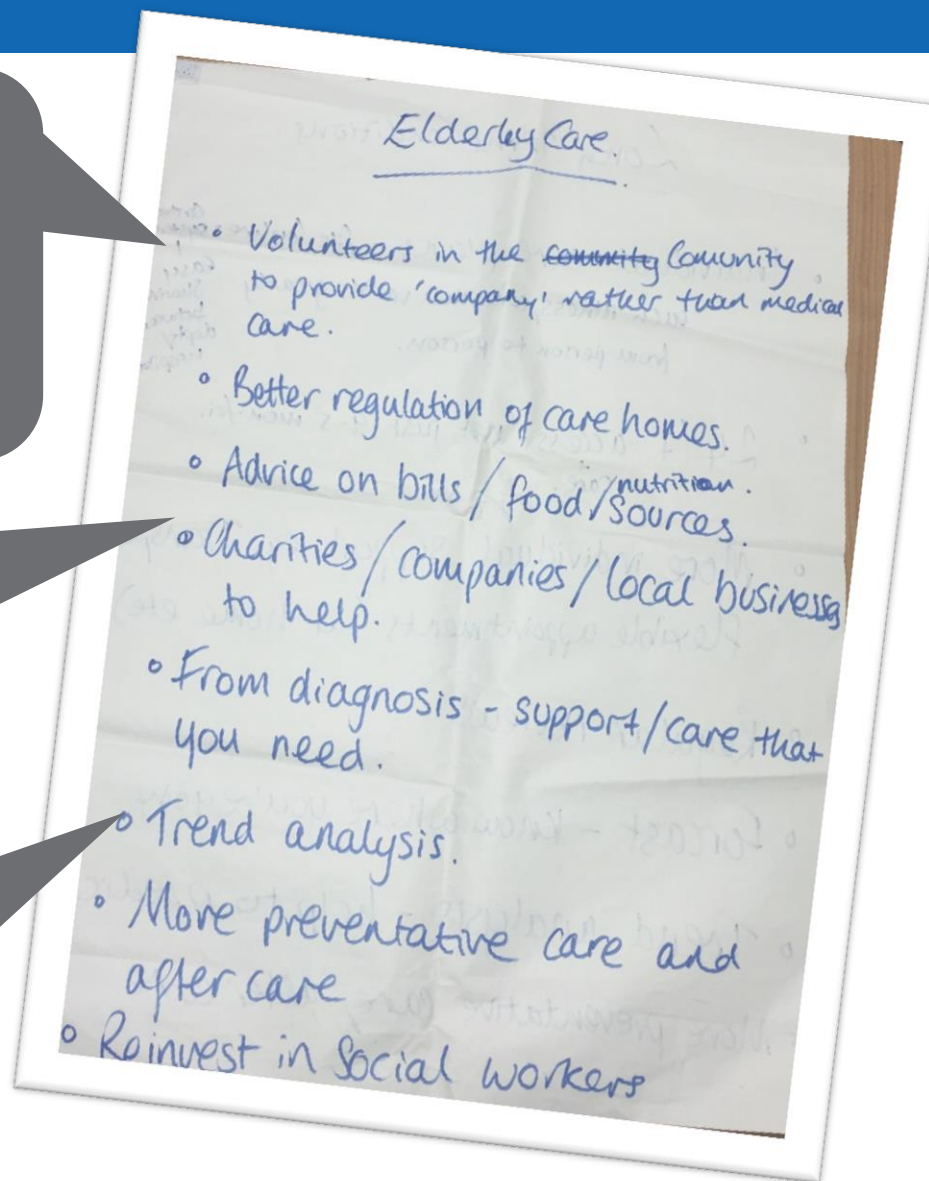 Elderley Care.
• Volunteers in the comunity Comunity
to provide 'company' rather than medical
care.
• Better regulation of care homes.
• Advice on bills / food / nutrition.
sources.
• Charities / companies / local businesses
to help.
• From diagnosis - support / care that
you need.
• Trend analysis.
• More preventative care and
after care
• Reinvest in Social workers